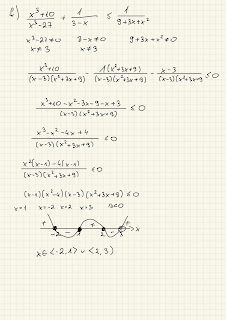 b) x³+10/x³-27 + 1/3-x ≤ 1/9+3x+x²
x³-27≠0 3-x≠0 9+3x+x²≠0
x≠3 x≠3
x³+10/(x-3)(x²+3x+9) - 1(x²+3x+9)/(x-3)(x²+3x+9) - x-3/(x-3)(x²+3x+9) ≤0
x³+10-x²-3x-9-x+3/(x-3)(x²+3x+9) ≤0
x³-x²-4x+4/(x-3)(x²+3x+9) ≤0
x²(x-1)-4(x-1)/(x-3)(x²+3x+9) ≤0
(x-1)(x²-4)(x-3)(x²+3x+9) ≤0
x=1 x=-2 x=2 x=3
+ - + - + x
-2 1 2 3
x∈<-2,1> ∪ <2,3)